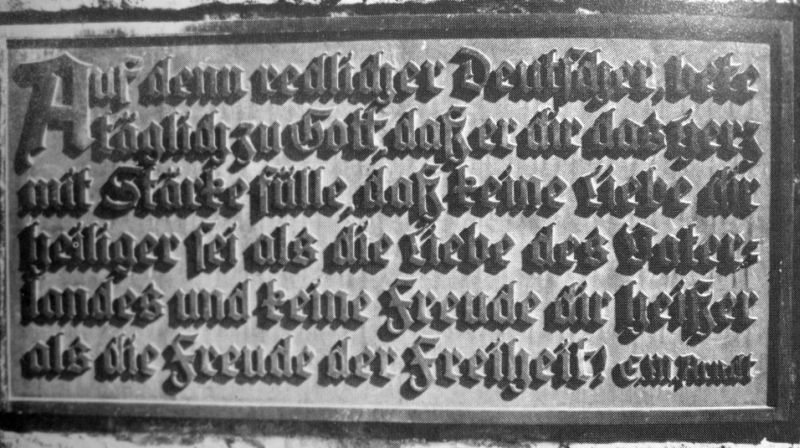 Auf denn redlicher Deutscher, bete
täglich zu Gott, daß er dir das Herz
mit Stärke fülle, daß keine Liebe dir
heiliger sei als die Liebe des Vater⸗
landes und keine Freude dir heißer
als die Freude der Freiheit! E.M. Arndt